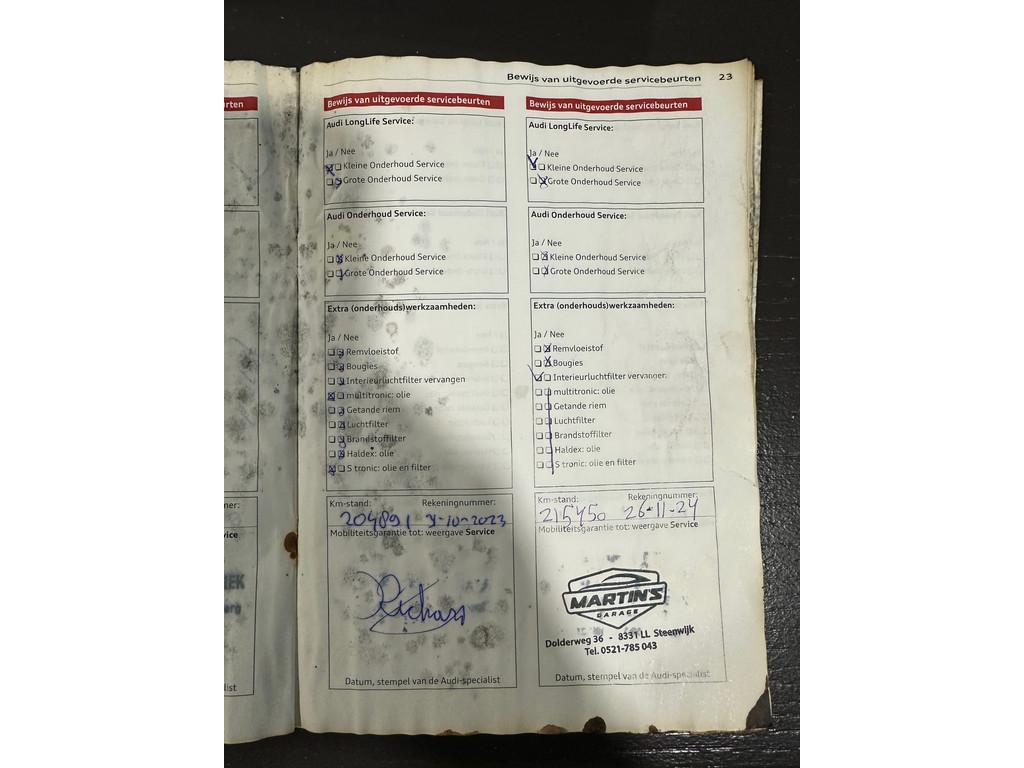 Bewijs van uitgevoerde servicebeurten 23
rten
ner:
vice
EK
erg
list
Bewijs van uitgevoerde servicebeurten
Audi LongLife Service:
Ja / Nee
Kleine Onderhoud Service
Grote Onderhoud Service
Audi Onderhoud Service:
Ja / Nee
Kleine Onderhoud Service
Grote Onderhoud Service
Extra (onderhouds)werkzaamheden:
Ja / Nee
Remvloeistof
Bougies
Interieurluchtfilter vervangen
multitronic: olie
Getande riem
Luchtfilter
Brandstoffilter
Haldex: olie
S tronic: olie en filter
Km-stand: Rekeningnummer:
204891 -10-2023
Mobiliteitsgarantie tot: weergave Service
Richars
Datum, stempel van de Audi-specialist
Bewijs van uitgevoerde servicebeurten
Audi LongLife Service:
Ja / Nee
Kleine Onderhoud Service
Grote Onderhoud Service
Audi Onderhoud Service:
Ja / Nee
Kleine Onderhoud Service
Grote Onderhoud Service
Extra (onderhouds)werkzaamheden:
Ja / Nee
Remvloeistof
Bougies
Interieurluchtfilter vervangen
multitronic: olie
Getande riem
Luchtfilter
Brandstoffilter
Haldex: olie
S tronic: olie en filter
Km-stand: Rekeningnummer:
215450 26-11-24
Mobiliteitsgarantie tot: weergave Service
MARTIN'S
GARAGE
Dolderweg 36 - 8331 LL Steenwijk
Tel. 0521-785 043
Datum, stempel van de Audi-specialist